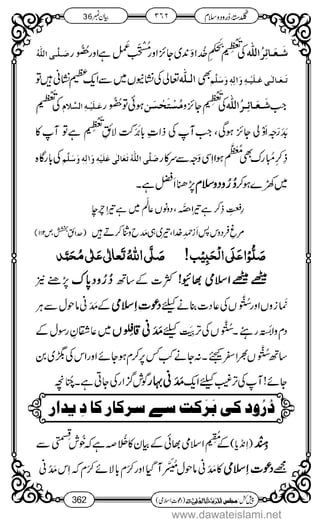 گلدستہ دُرود وسلام ٣٦٢ بیان نمبر 36
شَعَائِرُ اللہ کی تعظیم حکمِ خداوندی اور جائز و مستحب عمل ہے اور حُضُور صَلَّی اللہُ
تَعَالٰی عَلَیْہِ وَاٰلِہٖ وَسَلَّم بھی اللہ تعالیٰ کی نشانیوں میں سے ایک عظیم نشانی ہیں تو
جب شَعَائِرُ اللہ کی تعظیم جائز و مُسْتَحْسَن ہوئی تو حُضُور عَلَیْہِ السَّلَام کی تعظیم
بَدَرَجَۂ اَوْلٰی جائز ہوگی، جب آپ کی ذاتِ بابرکت لائقِ تعظیم ہے تو آپ کا
ذکرِ مُبارک بھی مُعَظَّم ہوا اسی وجہ سے سرکار صَلَّی اللہُ تَعَالٰی عَلَیْہِ وَاٰلِہٖ وَسَلَّم کی بارگاہ
میں کھڑے ہوکر دُرُود وسلام پڑھنا افضل ہے۔
رِفعتِ ذکر ہے تیرا حصّہ، دونوں عالَم میں ہے تیرا چرچا
مرغِ فردوس پس از حمدِ خدا، تیری ہی مدح و ثنا کرتے ہیں (حدائقِ بخشش، ص١١٣)
صَلُّوْا عَلَی الْحَبِیْب! صَلَّی اللہُ تَعَالٰی عَلٰی مُحَمَّد
میٹھے میٹھے اسلامی بھائیو! کثرت کے ساتھ دُرُودِ پاک پڑھنے نیز
نمازوں اور سُنَّتوں کی عادت بنانے کیلئے دعوتِ اسلامی کے مَدَنی ماحول سے ہر
دم وابستہ رہئے۔ سُنَّتوں کی تربیت کیلئے مَدَنی قافِلوں میں عاشقانِ رسول کے
ساتھ سُنَّتوں بھرا سفر کیجئے۔ نہ جانے کب کس پر کرم ہوجائے اور اس کی بگڑی بن
جائے! آپ کی ترغیب کیلئے ایک مَدَنی بہار گوش گزار کی جاتی ہے۔ چنانچہ
دُرُود کی بَرَکت سے سرکار کا دِیدار
ہند (انڈیا) کے مُقیم اسلامی بھائی کے بیان کا خُلاصہ ہے کہ خُوش قسمتی سے
مجھے دعوتِ اسلامی کا مَدَنی ماحول مُیَسَّر آگیا اور کرم بالائے کرم یہ کہ اِس مَدَنی
پیش کش: مجلس المدینۃ العلمیۃ (دعوتِ اسلامی) 362
www.dawateislami.net